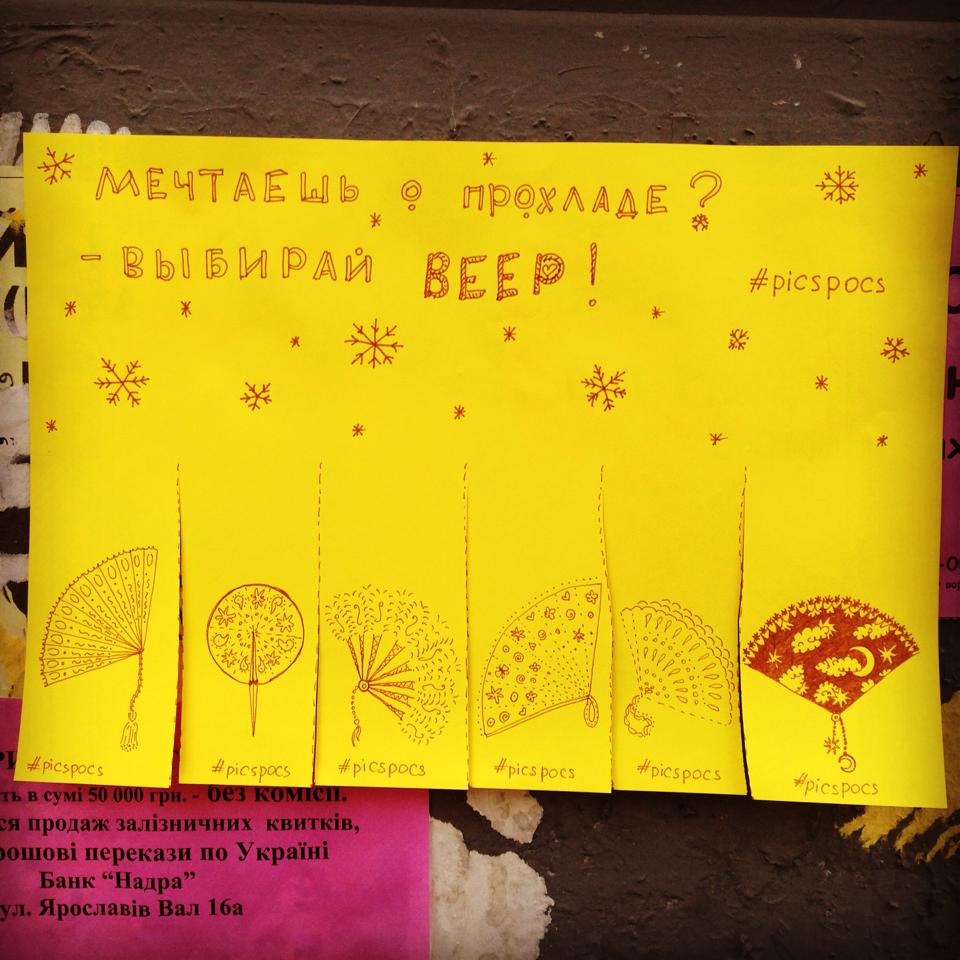 МЕЧТАЕШЬ О ПРОХЛАДЕ?
- ВЫБИРАЙ ВЕЕР!
#picspocs
#picspocs
#picspocs
#picspocs
#picspocs
#picspocs
#picspocs
в сумі 50 000 грн. - без комісії.
продаж залізничних квитків,
перекази по Україні
Банк “Надра”
ул. Ярославів Вал 16а